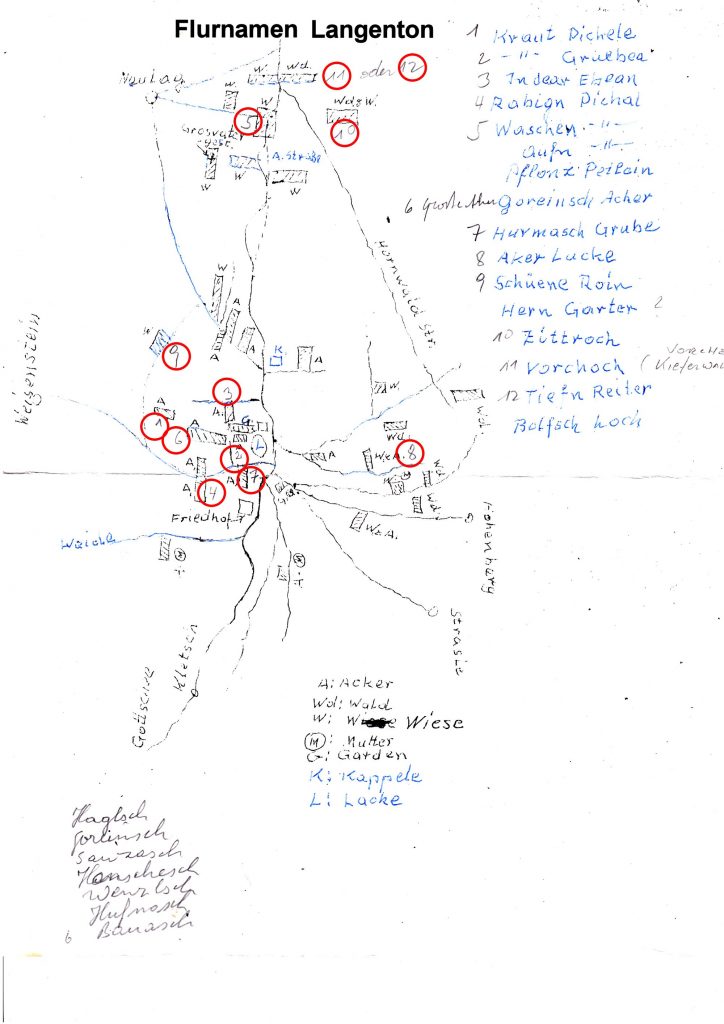 Flurnamen Langenton
1 Kraut Pichele
2 -"- Gruebea
3 Indear Ebean
4 Rabign Pichal
5 Waschen -"-
Aufn -"-
Pflonz Petlein
6 Goreinsch Acher
7 Hurmasch Grube
8 Aker Lucke
9 Schüene Roin
Hern Garter ?
10 Zittroch
11 Vorchoch (Kieferwal
12 Tiefn Reiter
Bolfsch hoch
Neulag
W.
Wd.
11 oder 12
W
W
5
Wd.
10
Grosvater
W
W
A. Straße
W
Hornwald Str.
Weigenstein
W
9
W
A
A
A
K
A
3
W.
A
1
6
A.
G.
2
L
A
Wd.
W.
W&A.
8
Wd.
A
A
4
A
7
M
Wd.
Wd.
Friedhof
W&A.
Weiche
M
M
Hohenberg
Strasle
Kletsch
Gottschee
A: Acker
Wd: Wald
W: Wiese Wiese
M: Mutter
G: Garden
K: Kappele
L: Lacke
Haglsch
Gorlinsch
Sauzasch
Honschesch
Wenzlsch
Hufnasch
6 Banasch